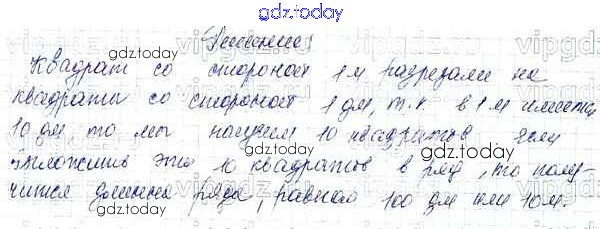 gdz.today
Решение:
Квадрат со стороной 1 м разрезали на
квадраты со стороной 1 дм, т.к в 1 м имеется
10 дм то мы получим 10 квадратов если
выложить эти 10 квадратов в ряд, то полу-
чится длинна ряда, равная 100 дм или 10 м.